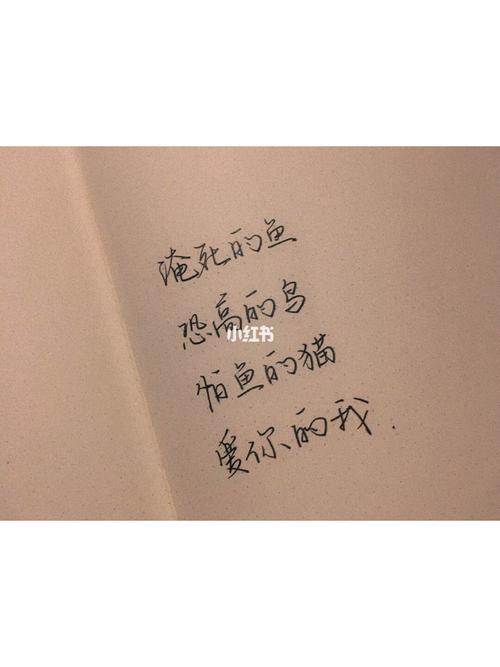 淹死的鱼
恐高的鸟
小红书
怕鱼的猫
爱你的我.